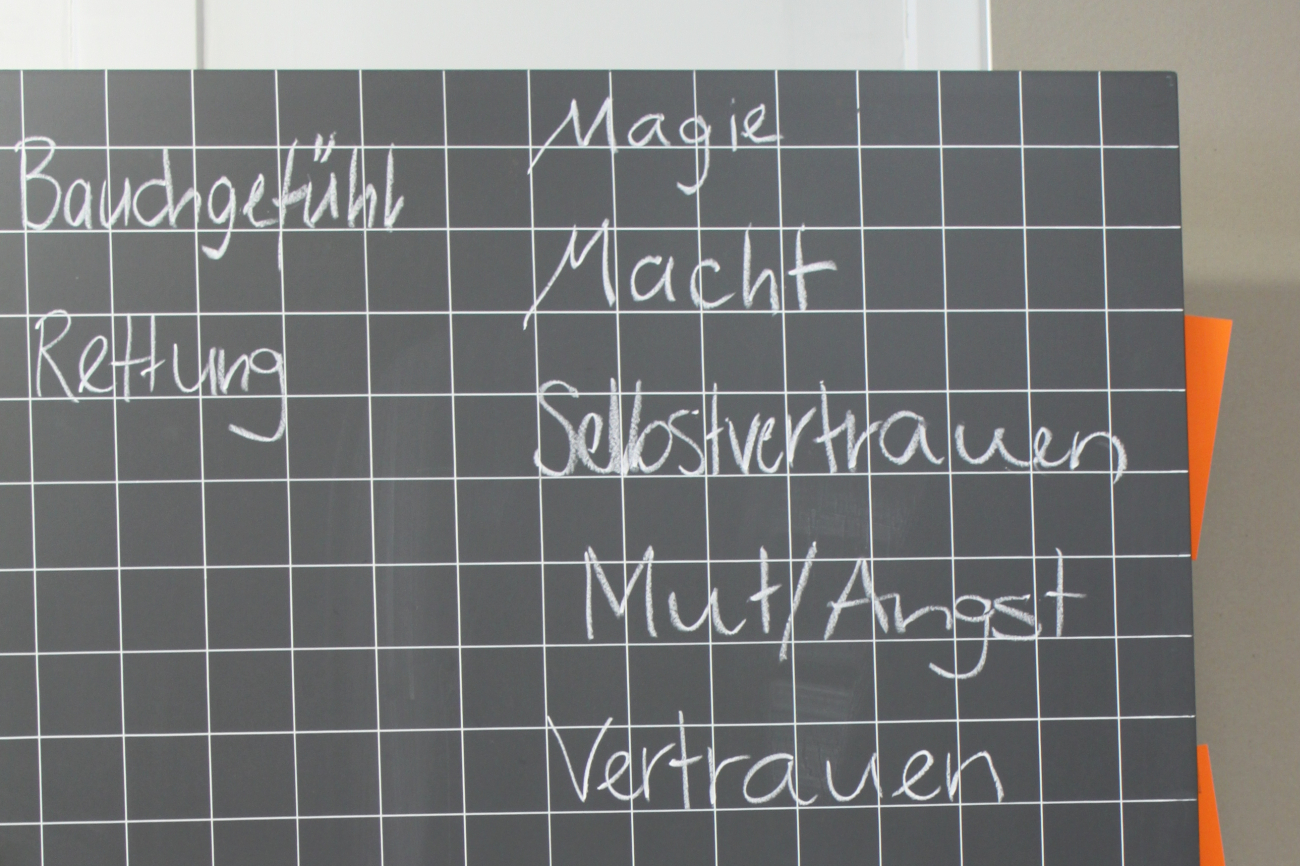 Bauchgefühl
Rettung
Magie
Macht
Selbstvertrauen
Mut/Angst
Vertrauen